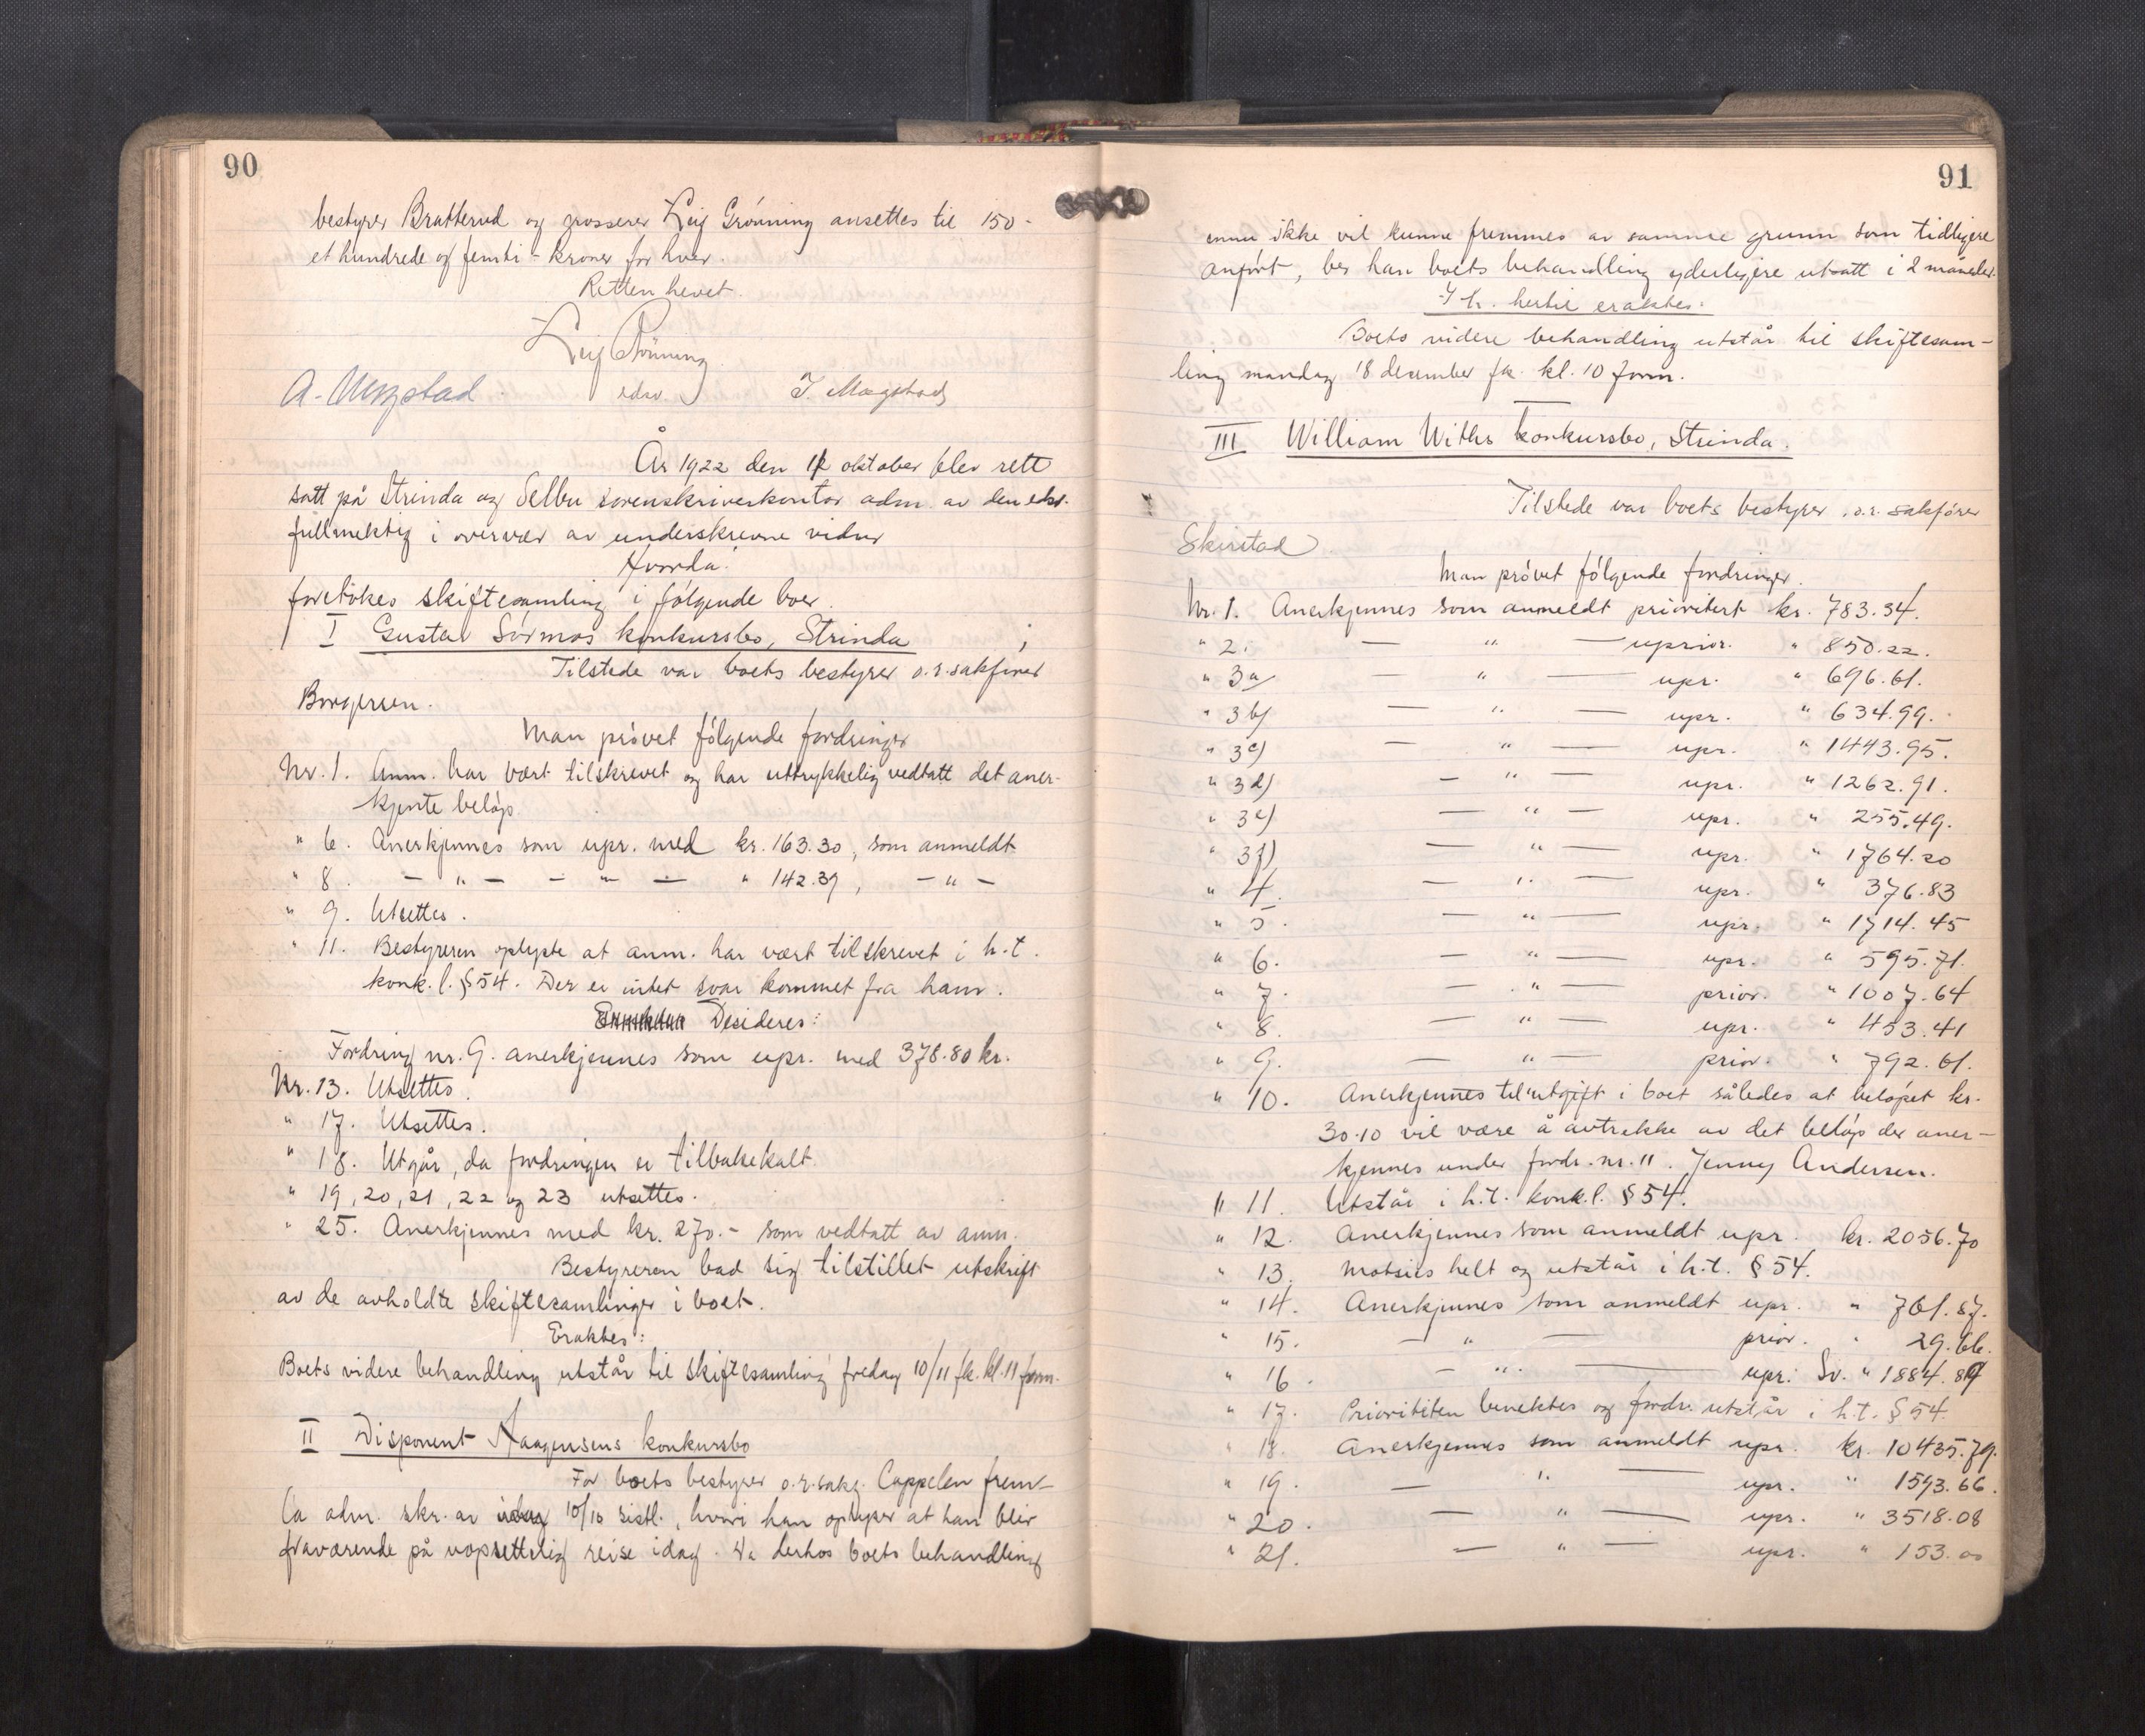 90
bestyrer Bratterud og grosserer Leif Grönning ansettes til 150 -
et hundrede og femti - kroner for hver.
Retten hevet.
Leif Grönning
A. Mogstad edsv. J. Mogstad
År 1922 den 12 oktober blev rett
satt på Strinda og Selbu sorenskriverkontor adm. av den edsv.
fullmektig i overvær av underskrevne vidner
Hvorda:
foretokes skiftesamling i følgende boer.
I Gustav Sörmos konkursbo, Strinda ;
Tilstede var boets bestyrer o.r.sakfører
Borgersen.
Man prövet fölgende fordringer
Nr. 1. Anm. har vært tilskrevet og har uttrykkelig vedtatt det aner-
kjente belöp.
" 6. Anerkjennes som upr. med kr. 163.30, som anmeldt
" 8. — " — — " — " 142.39, — " —
" 9. Utsettes.
" 11. Bestyreren oplyste at anm. har vært tilskrevet i h.t.
konk.l. § 54. Der er intet svar kommet fra ham.
Desideres:
Fordring nr. 9. anerkjennes som upr. med 378.80 kr.
Nr. 13. Utsettes.
" 17. Utsettes.
" 18. Utgår, da fordringen er tilbakekalt.
" 19, 20, 21, 22 og 23 utsettes.
" 25. Anerkjennes med kr. 270.- som vedtatt av anm.
Bestyreren bad sig tilstillet utskrift
av de avholdte skiftesamlinger i boet.
Eraktes:
Boets videre behandling utstår til skiftesamling fredag 10/11 fk. kl. 11 form.
II Disponent Haagensens konkursbo
For boets bestyrer o.r.sakf. Cappelen frem-
la adm. skr. av idag 10/10 sistl., hvori han oplyser at han blir
fraværende på uopsettelig reise idag. Da derhos boets behandling
91
ennu ikke vil kunne fremmes av samme grunn som tidligere
anfört, ber han boets behandling yderligere utsatt i 2 måneder.
I h. hertil eraktes:
Boets videre behandling utstår til skiftesam-
ling mandag 18 desember fk. kl. 10 form.
III William Withs konkursbo, Strinda.
Tilstede var boets bestyrer, o.r. sakförer
Skirstad
Man prövet fölgende fordringer.
Nr. 1. Anerkjennes som anmeldt prioritert kr. 783.34.
" 2. — " — uprior. " 850.22.
" 3a) — " — upr. " 696.61.
" 3b) — " — upr. " 634.99.
" 3c) — " — upr. " 1443.95.
" 3d) — " — upr. " 1262.91.
" 3e) — " — upr. " 255.49.
" 3f) — " — upr. " 1764.20
" 4. — " — upr. " 376.83
" 5. — " — upr. " 1714.45
" 6. — " — upr. " 595.71.
" 7. — " — prior. " 1007.64
" 8. — " — upr. " 453.41
" 9. — " — prior. " 792.61.
" 10. Anerkjennes til utgift i boet således at belöpet kr.
30.10 vil være å avtrekke av det belöp der aner-
kjennes under fordr. nr. 11. Jenny Andersen.
" 11. Utstår i h.t. konk.l. § 54.
" 12. Anerkjennes som anmeldt upr. kr. 2056.70
" 13. Motsies helt og utstår i h.t. § 54.
" 14. Anerkjennes som anmeldt upr. " 761.87.
" 15. — " — prior. " 29.66.
" 16. — " — upr. Sv. " 1884.89
" 17. Prioriteten benektes og fordr. utstår i h.t. § 54.
" 18. Anerkjennes som anmeldt upr. kr. 10435.79.
" 19. — " — upr. " 1593.66.
" 20. — " — upr. " 3518.08
" 21. — " — upr. " 153.00